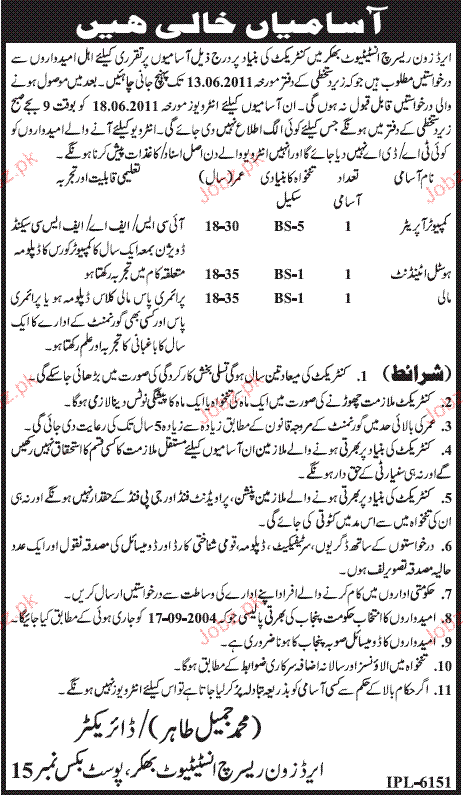 آسامیاں خالی ہیں
ایرڈ زون ریسرچ انسٹیٹیوٹ بھکر میں کنٹریکٹ کی بنیاد پر درج ذیل آسامیوں پر تقرری کیلئے اہل امیدواروں سے
درخواستیں مطلوب ہیں جو کہ زیر دستخطی کے دفتر مورخہ 13.06.2011 تک پہنچ جانی چاہئیں۔ بعد میں موصول ہونے
والی درخواستیں قابل قبول نہ ہوں گی۔ ان آسامیوں کیلئے انٹرویوز مورخہ 18.06.2011 کو بوقت 9 بجے صبح
زیر دستخطی کے دفتر میں ہونگے جس کیلئے کوئی الگ اطلاع نہیں دی جائے گی۔ انٹرویو کیلئے آنے والے امیدواروں کو
کوئی ٹی اے/ڈی اے نہیں دیا جائے گا اور انہیں انٹرویو والے دن اصل اسناد/کاغذات پیش کرنا ہونگے۔
نام آسامی تعداد آسامی تنخواہ کا بنیادی سکیل عمر (سال) تعلیمی قابلیت اور تجربہ
کمپیوٹر آپریٹر 1 BS-5 18-30 آئی سی ایس/ایف اے/ایف ایس سی سیکنڈ
ڈویژن بمعہ ایک سال کا کمپیوٹر کورس کا ڈپلومہ
ہوسٹل اٹینڈنٹ 1 BS-1 18-35 متعلقہ کام میں تجربہ رکھتا ہو
مالی 1 BS-1 18-35 پرائمری پاس مالی کلاس ڈپلومہ ہو یا پرائمری
پاس اور کسی بھی گورنمنٹ کے ادارے کا ایک
سال کا باغبانی کا تجربہ اور علم رکھتا ہو۔
(شرائط) 1. کنٹریکٹ کی میعاد تین سال ہوگی تسلی بخش کارکردگی کی صورت میں بڑھائی جاسکے گی۔
2. کنٹریکٹ ملازمت چھوڑنے کی صورت میں ایک ماہ کی تنخواہ یا ایک ماہ کا پیشگی نوٹس دینا لازمی ہوگا۔
3. عمر کی بالائی حد میں گورنمنٹ کے مروجہ قانون کے مطابق زیادہ سے زیادہ 5 سال تک کی رعایت دی جائی گی۔
4. کنٹریکٹ کی بنیاد پر بھرتی ہونے والے ملازمین ان آسامیوں کیلئے مستقل ملازمت کا کسی قسم کا استحقاق نہیں رکھیں
گے اور نہ ہی سنیارٹی کے حق دار ہونگے۔
5. کنٹریکٹ کی بنیاد پر بھرتی ہونے والے ملازمین پنشن، پراویڈنٹ فنڈ اور جی پی فنڈ کے حقدار نہیں ہونگے اور نہ ہی
ان کی تنخواہ میں سے اس مد میں کٹوتی کی جائے گی۔
6. درخواستوں کے ساتھ ڈگریوں، سرٹیفکیٹ، ڈپلومہ، قومی شناختی کارڈ اور ڈومیسائل کی مصدقہ نقول اور ایک عدد
حالیہ مصدقہ تصویر لف ہوں۔
7. حکومتی اداروں میں کام کرنے والے افراد اپنے ادارے کی وساطت سے درخواستیں ارسال کریں۔
8. امیدواروں کا انتخاب حکومت پنجاب کی بھرتی پالیسی جو کہ 17-09-2004 کو جاری ہوئی کے مطابق کیا جائیگا۔
9. امیدواروں کا ڈومیسائل صوبہ پنجاب کا ہونا ضروری ہے۔
10. تنخواہ میں الاؤنسز اور سالانہ اضافہ سرکاری ضوابط کے مطابق ہوگا۔
11. اگر حکام بالا کے حکم سے کسی آسامی کو بذریعہ تبادلہ پُر کرلیا جاتا ہے تو اس کیلئے انٹرویوز نہیں ہونگے۔
(محمد جمیل طاہر)/ڈائریکٹر
ایرڈ زون ریسرچ انسٹیٹیوٹ بھکر، پوسٹ بکس نمبر 15
IPL-6151
Jobz.pk